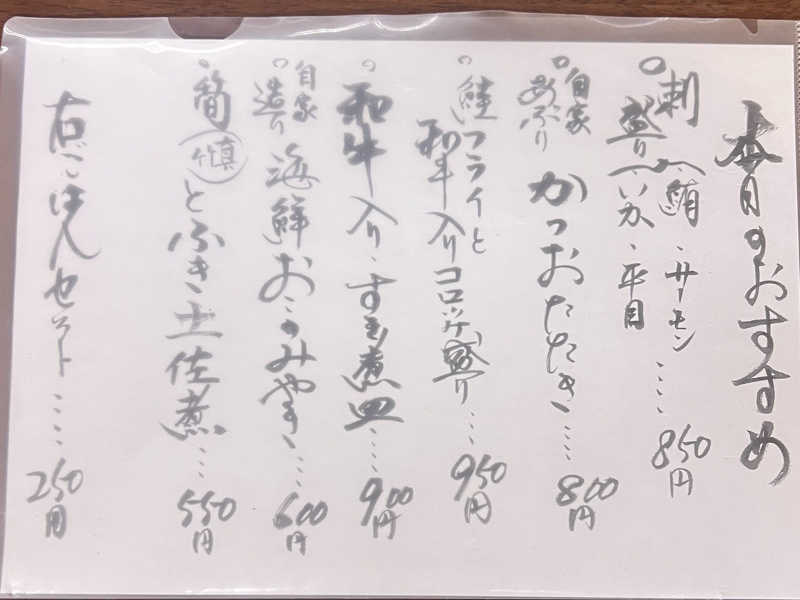 本日のおすすめ
○刺盛り 鮪、サーモン いか、平目 … 850円
○自家あぶり かつおたたき … 800円
○鮭フライと和牛入りコロッケ盛り … 950円
○和牛入り、すき煮皿 … 900円
○自家造り 海鮮おこのみやき … 600円
とふき土佐煮 … 550円
右ごはんセット … 250円